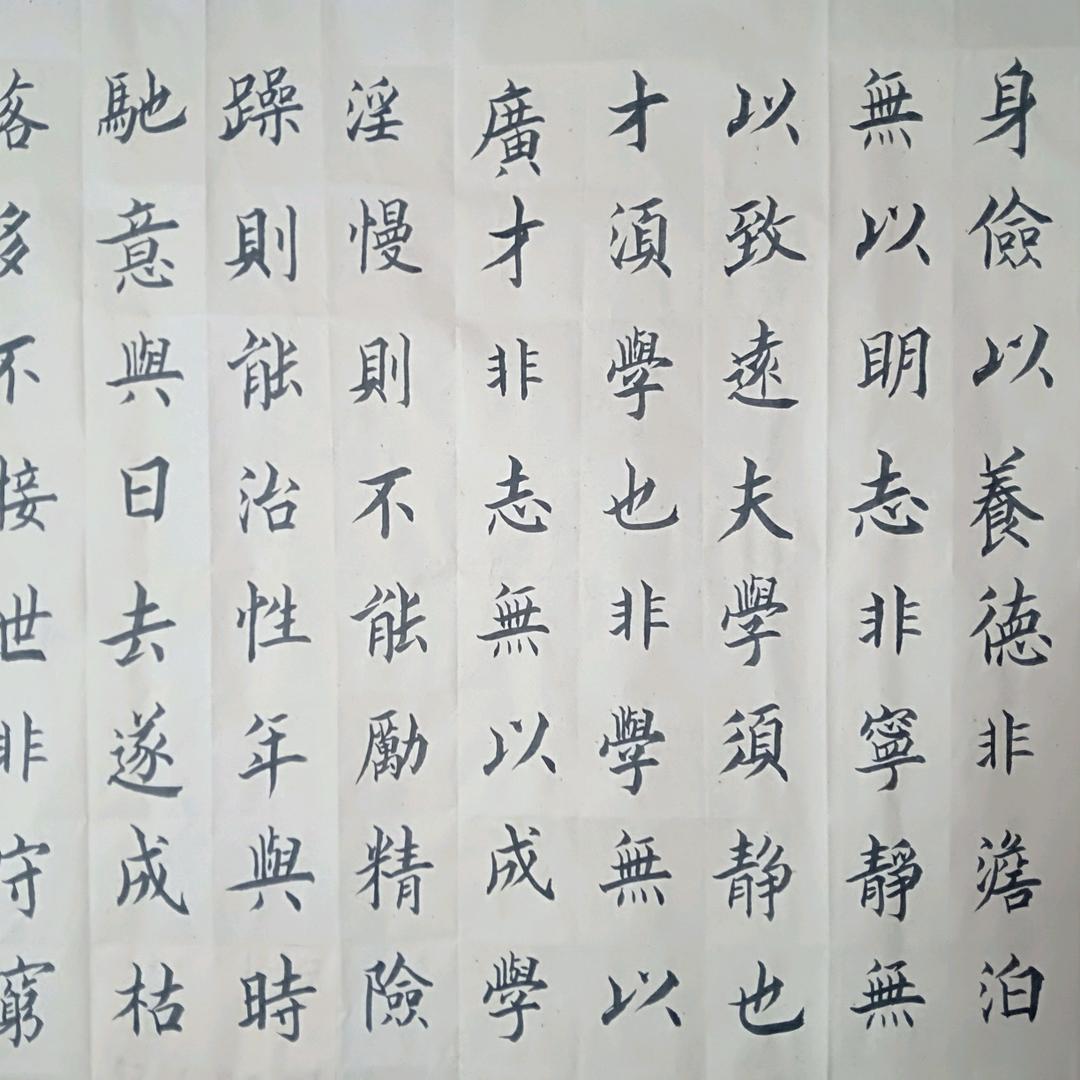 身儉以養德非澹泊
無以明志非寧靜無
以致遠夫學須静也
才須學也非學無以
廣才非志無以成學
淫慢則不能勵精險
躁則能治性年與時
馳意與日去遂成枯
落多不接世非守窮